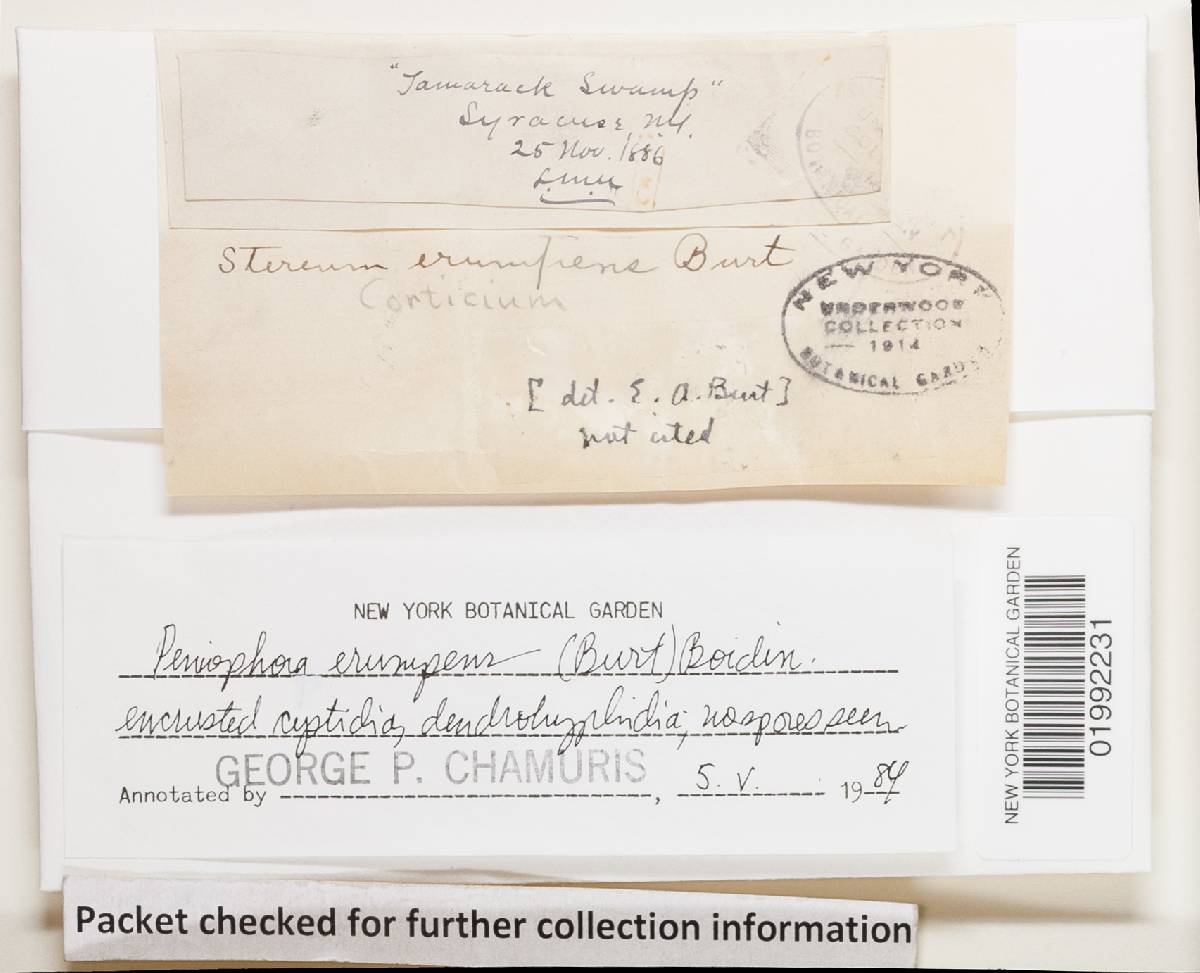 "Tamarack Swamp"
Syracuse, N.Y.
25 Nov. 1886
L.M.U.
Stereum erumpens Burt
Corticium
NEW YORK
UNDERWOOD
COLLECTION
— 1914
BOTANICAL GARDEN
[det. E. A. Burt]
not cited
NEW YORK BOTANICAL GARDEN
Peniophora erumpens (Burt) Boidin.
encrusted cystidia, dendrohyphidia; no spores seen
GEORGE P. CHAMURIS
Annotated by , 5. V. 1984
NEW YORK BOTANICAL GARDEN
01992231
Packet checked for further collection information